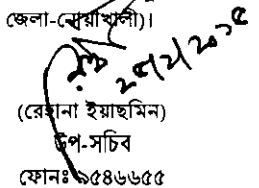 জেলা-নোয়াখালী)।
২৫/২/২০১৫
(রেহানা ইয়াছমিন)
উপ-সচিব
ফোনঃ ৯৫৪৬৬৫৫